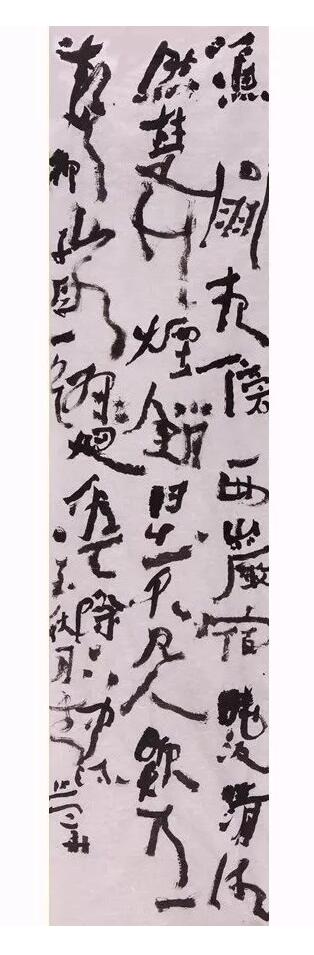 漁翁夜傍西巖宿曉汲清湘
然楚竹煙銷日出不見人欸乃一
聲山水綠迴看天際下中流
柳子厚一